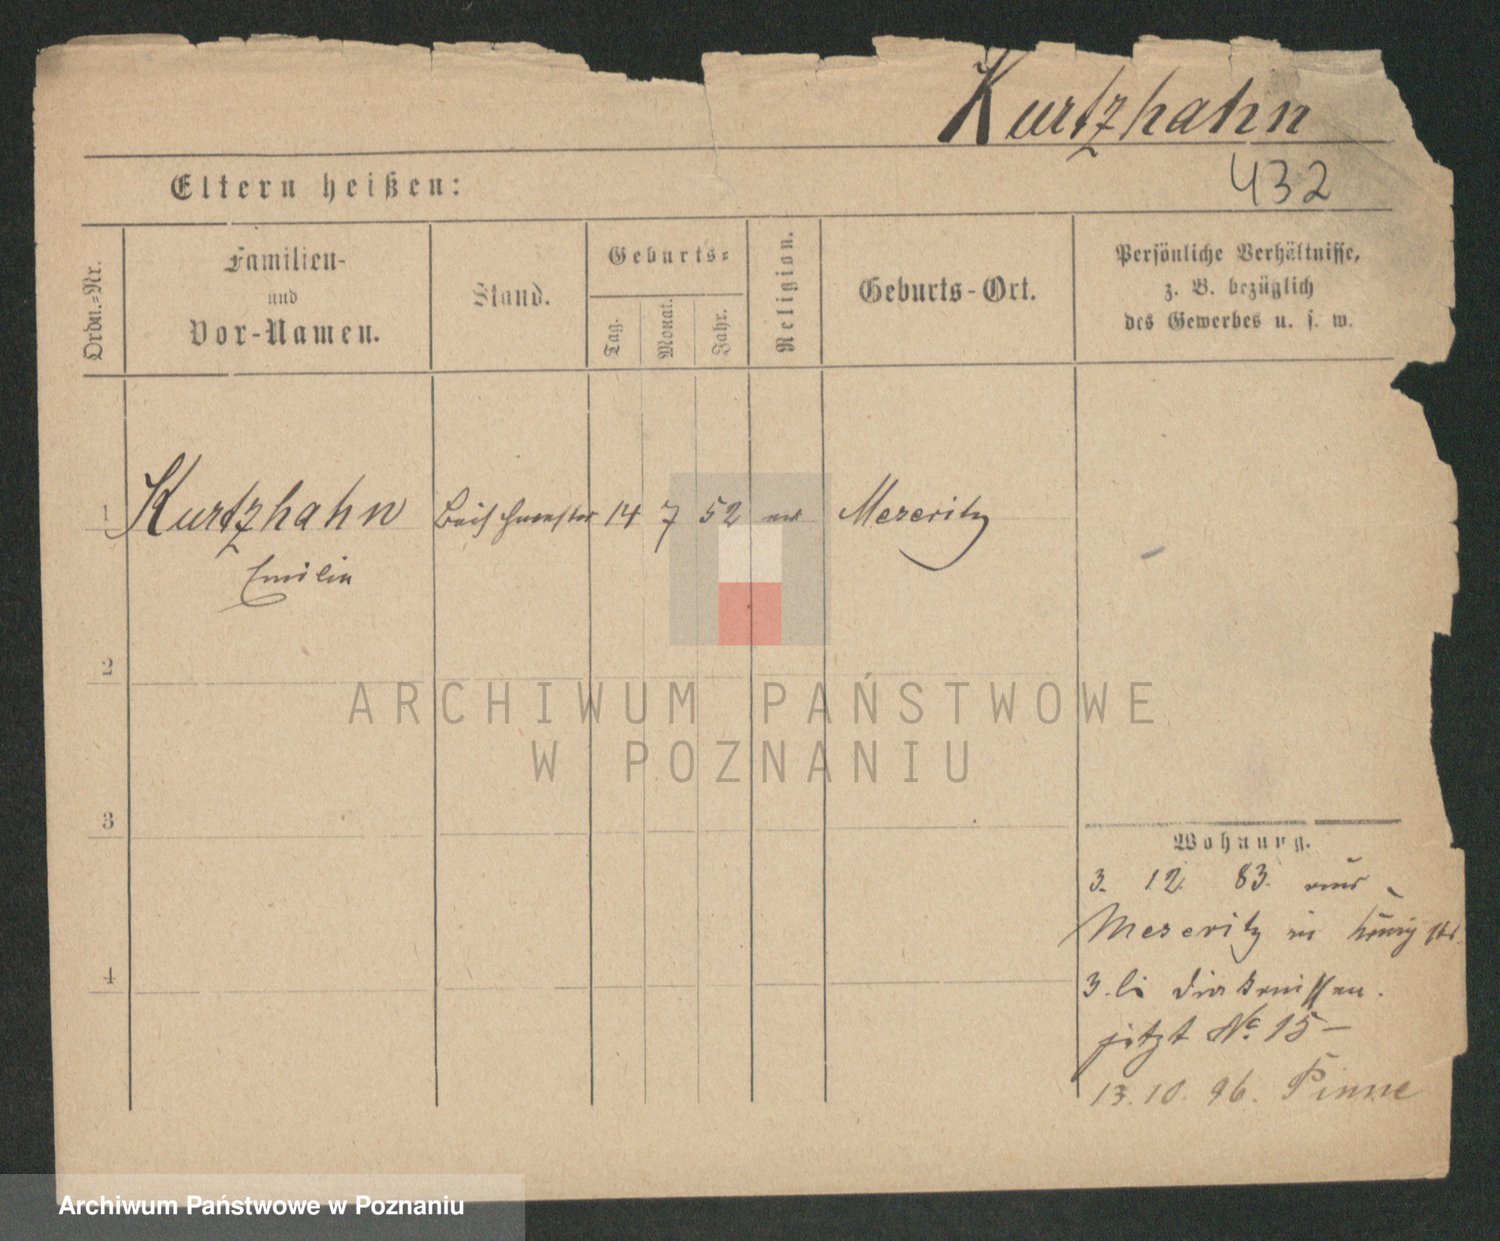 Kurtzhahn
432
Eltern heißen:
Ordn.-Nr.
Familien-
und
Vor-Namen.
Stand.
Geburts-
Tag.
Monat.
Jahr.
Religion.
Geburts-Ort.
Persönliche Verhältnisse,
z. B. bezüglich
des Gewerbes u. s. w.
1 Kurtzhahn 14 7 52 ev Meseritz
Emilie
2
ARCHIWUM PAŃSTWOWE
W POZNANIU
3
Wohnung.
3. 12. 83. aus
Meseritz in Königstr.
4
3. bi Diakonissen.
jetzt No. 15 –
13. 10. 96. Pinne
Archiwum Państwowe w Poznaniu